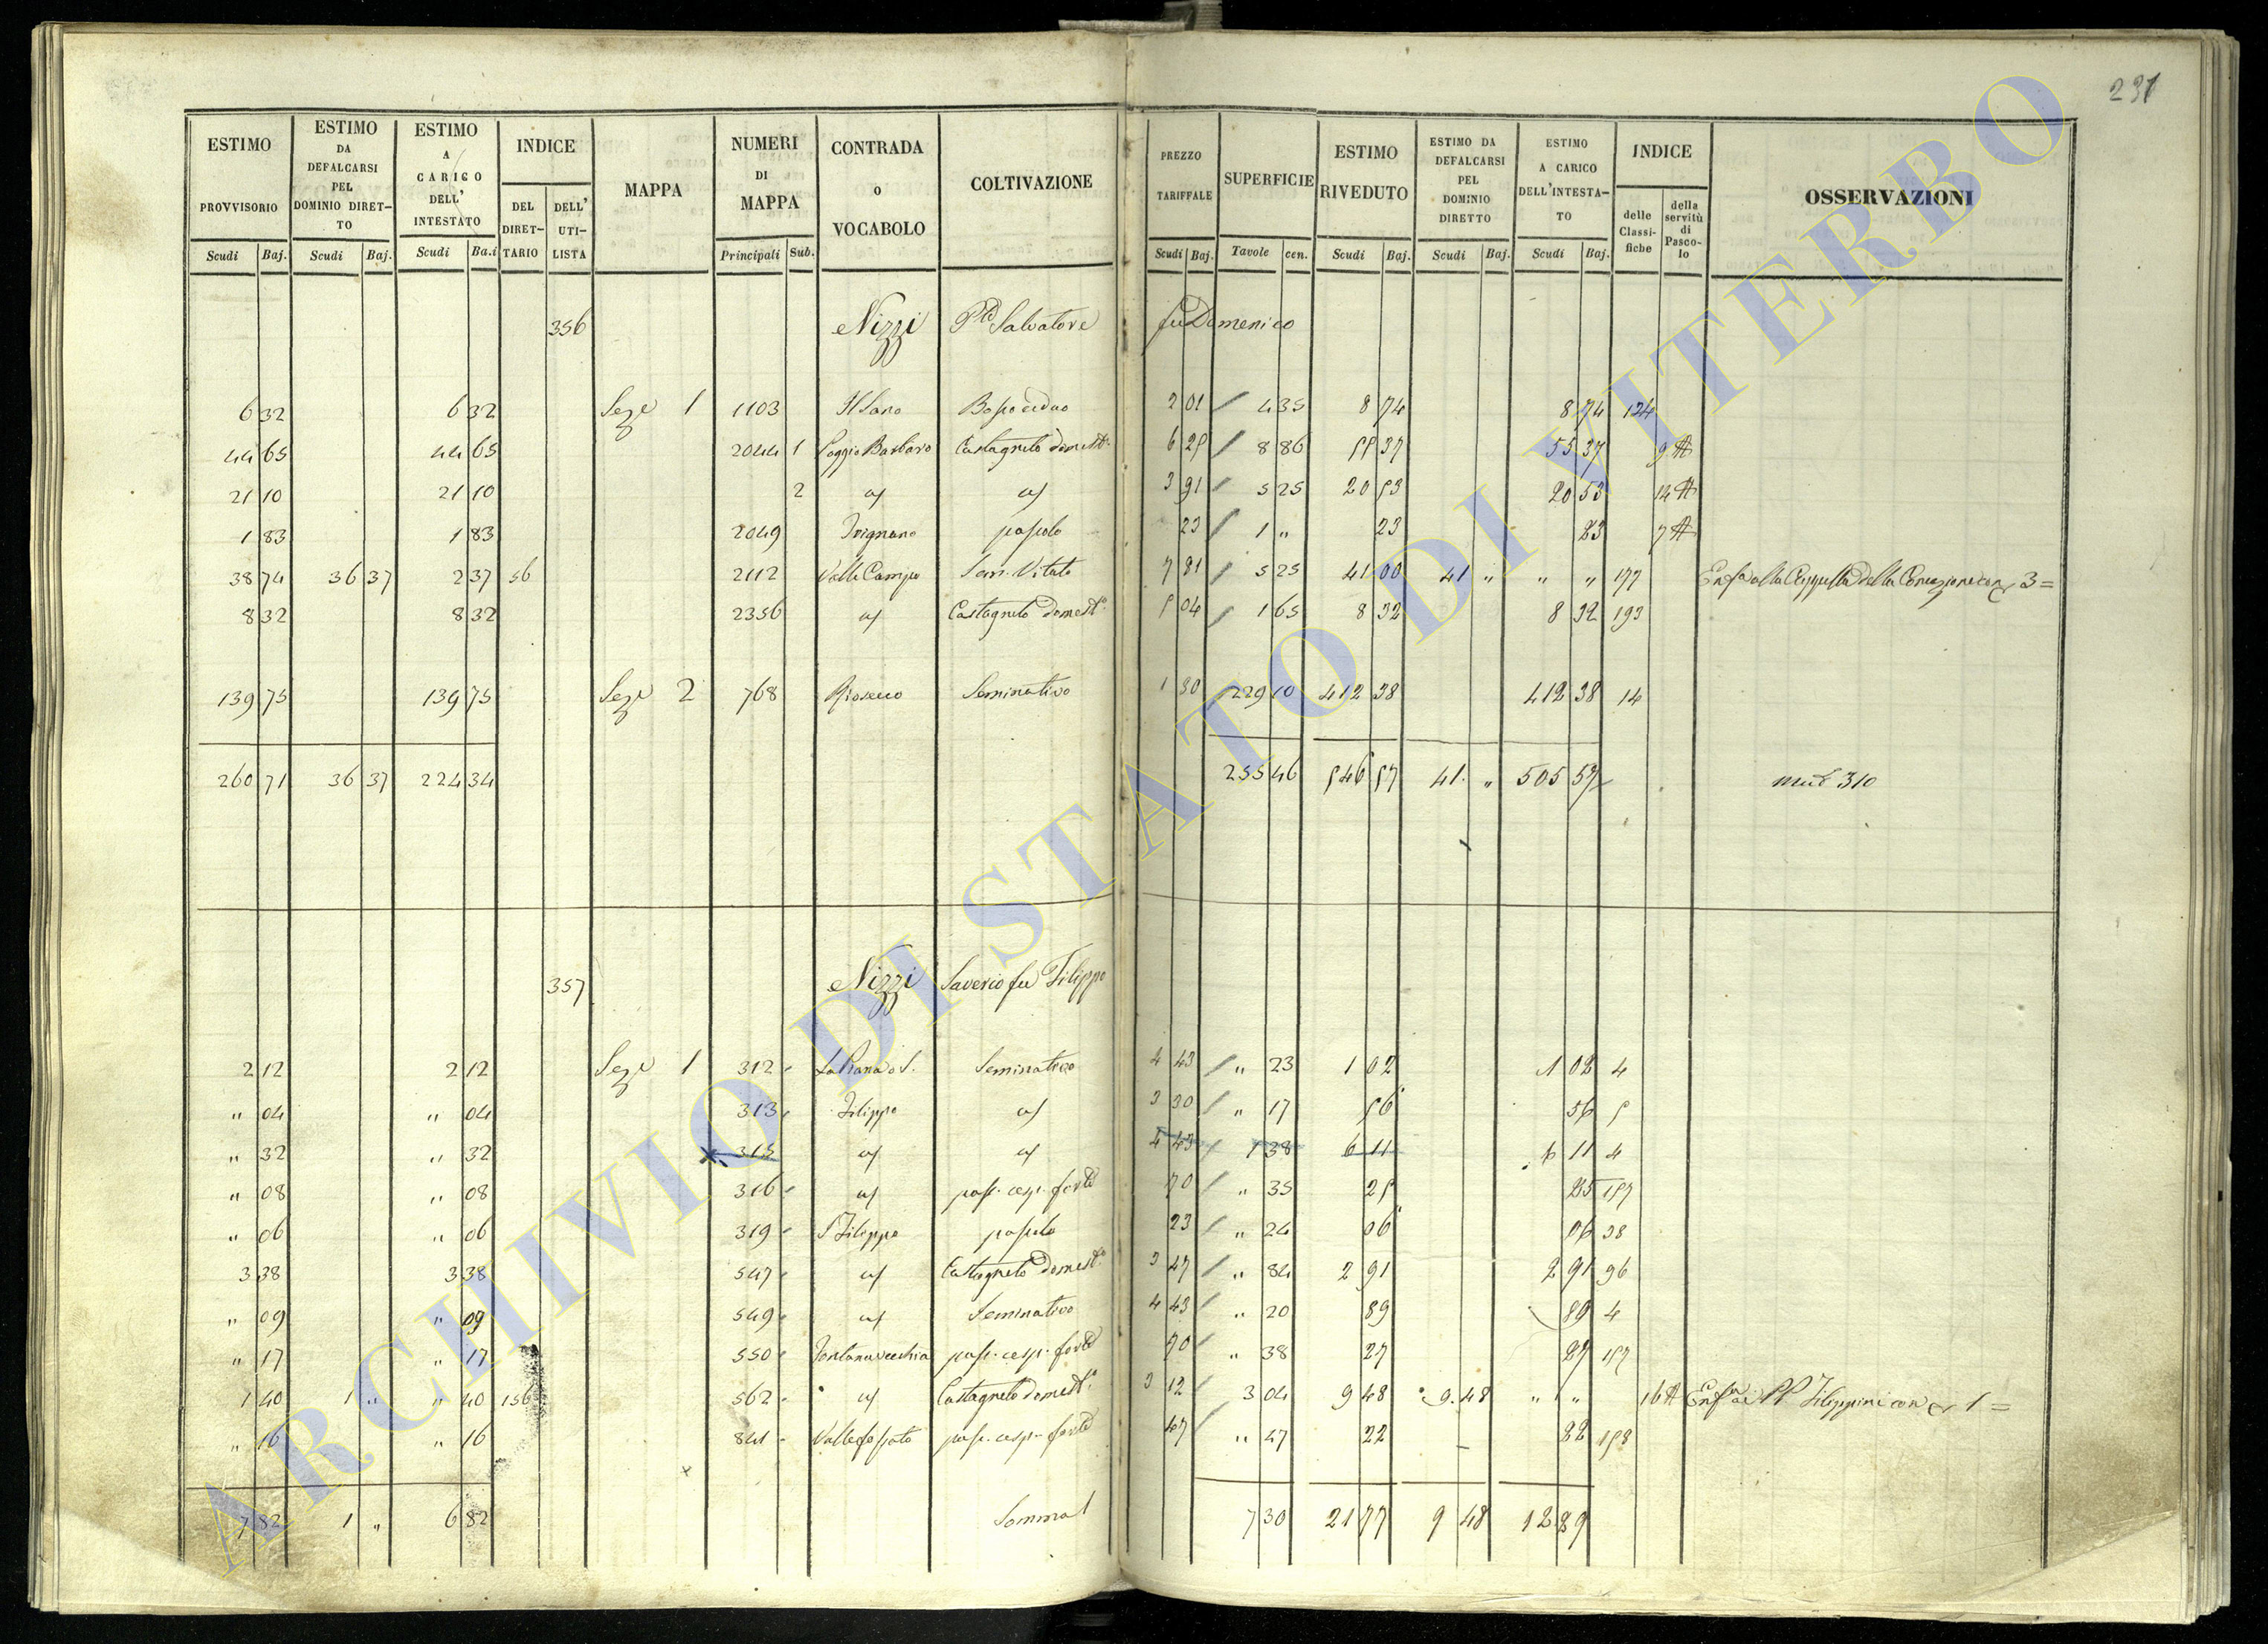 231
ESTIMO PROVVISORIO Scudi Baj. | ESTIMO DA DEFALCARSI PEL DOMINIO DIRET-TO Scudi Baj. | ESTIMO A CARICO DELL' INTESTATO Scudi Ba.i | INDICE DEL DIRET-TARIO DELL' UTI-LISTA | MAPPA | NUMERI DI MAPPA Principali Sub. | CONTRADA O VOCABOLO | COLTIVAZIONE | PREZZO TARIFFALE Scudi Baj. | SUPERFICIE Tavole cen. | ESTIMO RIVEDUTO Scudi Baj. | ESTIMO DA DEFALCARSI PEL DOMINIO DIRETTO Scudi Baj. | ESTIMO A CARICO DELL'INTESTA-TO Scudi Baj. | INDICE delle Classi-fiche della servitù di Pasco-lo | OSSERVAZIONI
356 Nizzi Salvatore fu Domenico
6 32 6 32 Seze 1 1103 Il Sano Bosco ceduo 2 01 4 35 8 74 8 74 124
44 65 44 65 2044 1 Poggio Barbaro Castagneto domest. 6 25 8 86 55 37 55 37 9 A
21 10 21 10 2 3 91 5 25 20 53 20 53 14 A
1 83 1 83 2049 Trignano pascolo 23 1 " 23 23 7 A
38 74 36 37 2 37 56 2112 Valle Campo Sem. Vitato 7 81 5 25 41 00 41 " " " 177 Enfa alla Cappella della Concezione con 3 =
8 32 8 32 2356 Castagneto domest. 5 04 1 65 8 32 8 32 193
139 75 139 75 Seze 2 768 Riosecco Seminativo 1 80 229 10 412 38 412 38 14
260 71 36 37 224 34 255 46 546 57 41 " 505 57 310
357 Nizzi Saverio fu Filippo
2 12 2 12 Seze 1 312 La Piana o S. Seminativo 4 43 " 23 1 02 1 02 4
" 04 " 04 313 Filippo 3 30 " 17 56 56 5
" 32 " 32 315 4 43 1 38 6 11 6 11 4
" 08 " 08 316 pasc. cesp. forte 70 " 35 25 25 157
" 06 " 06 319 S Filippo pascolo 23 " 24 06 06 38
3 38 3 38 547 Castagneto domest. 3 47 " 84 2 91 2 91 96
" 09 " 09 549 Seminativo 4 43 " 20 89 89 4
" 17 " 17 550 Fontanavecchia pasc. cesp. forte 70 " 38 27 27 157
1 40 1 " " 40 156 562 Castagneto domest. 3 12 3 04 9 48 9.48 " " 16 A Enfa ai PP Filippini con 1 =
" 16 " 16 841 Vallefossato pasc. cesp. forte 47 " 47 22 22 158
7 82 1 " 6 82 Somma 7 30 21 77 9 48 12 29
ARCHIVIO DI STATO DI VITERBO